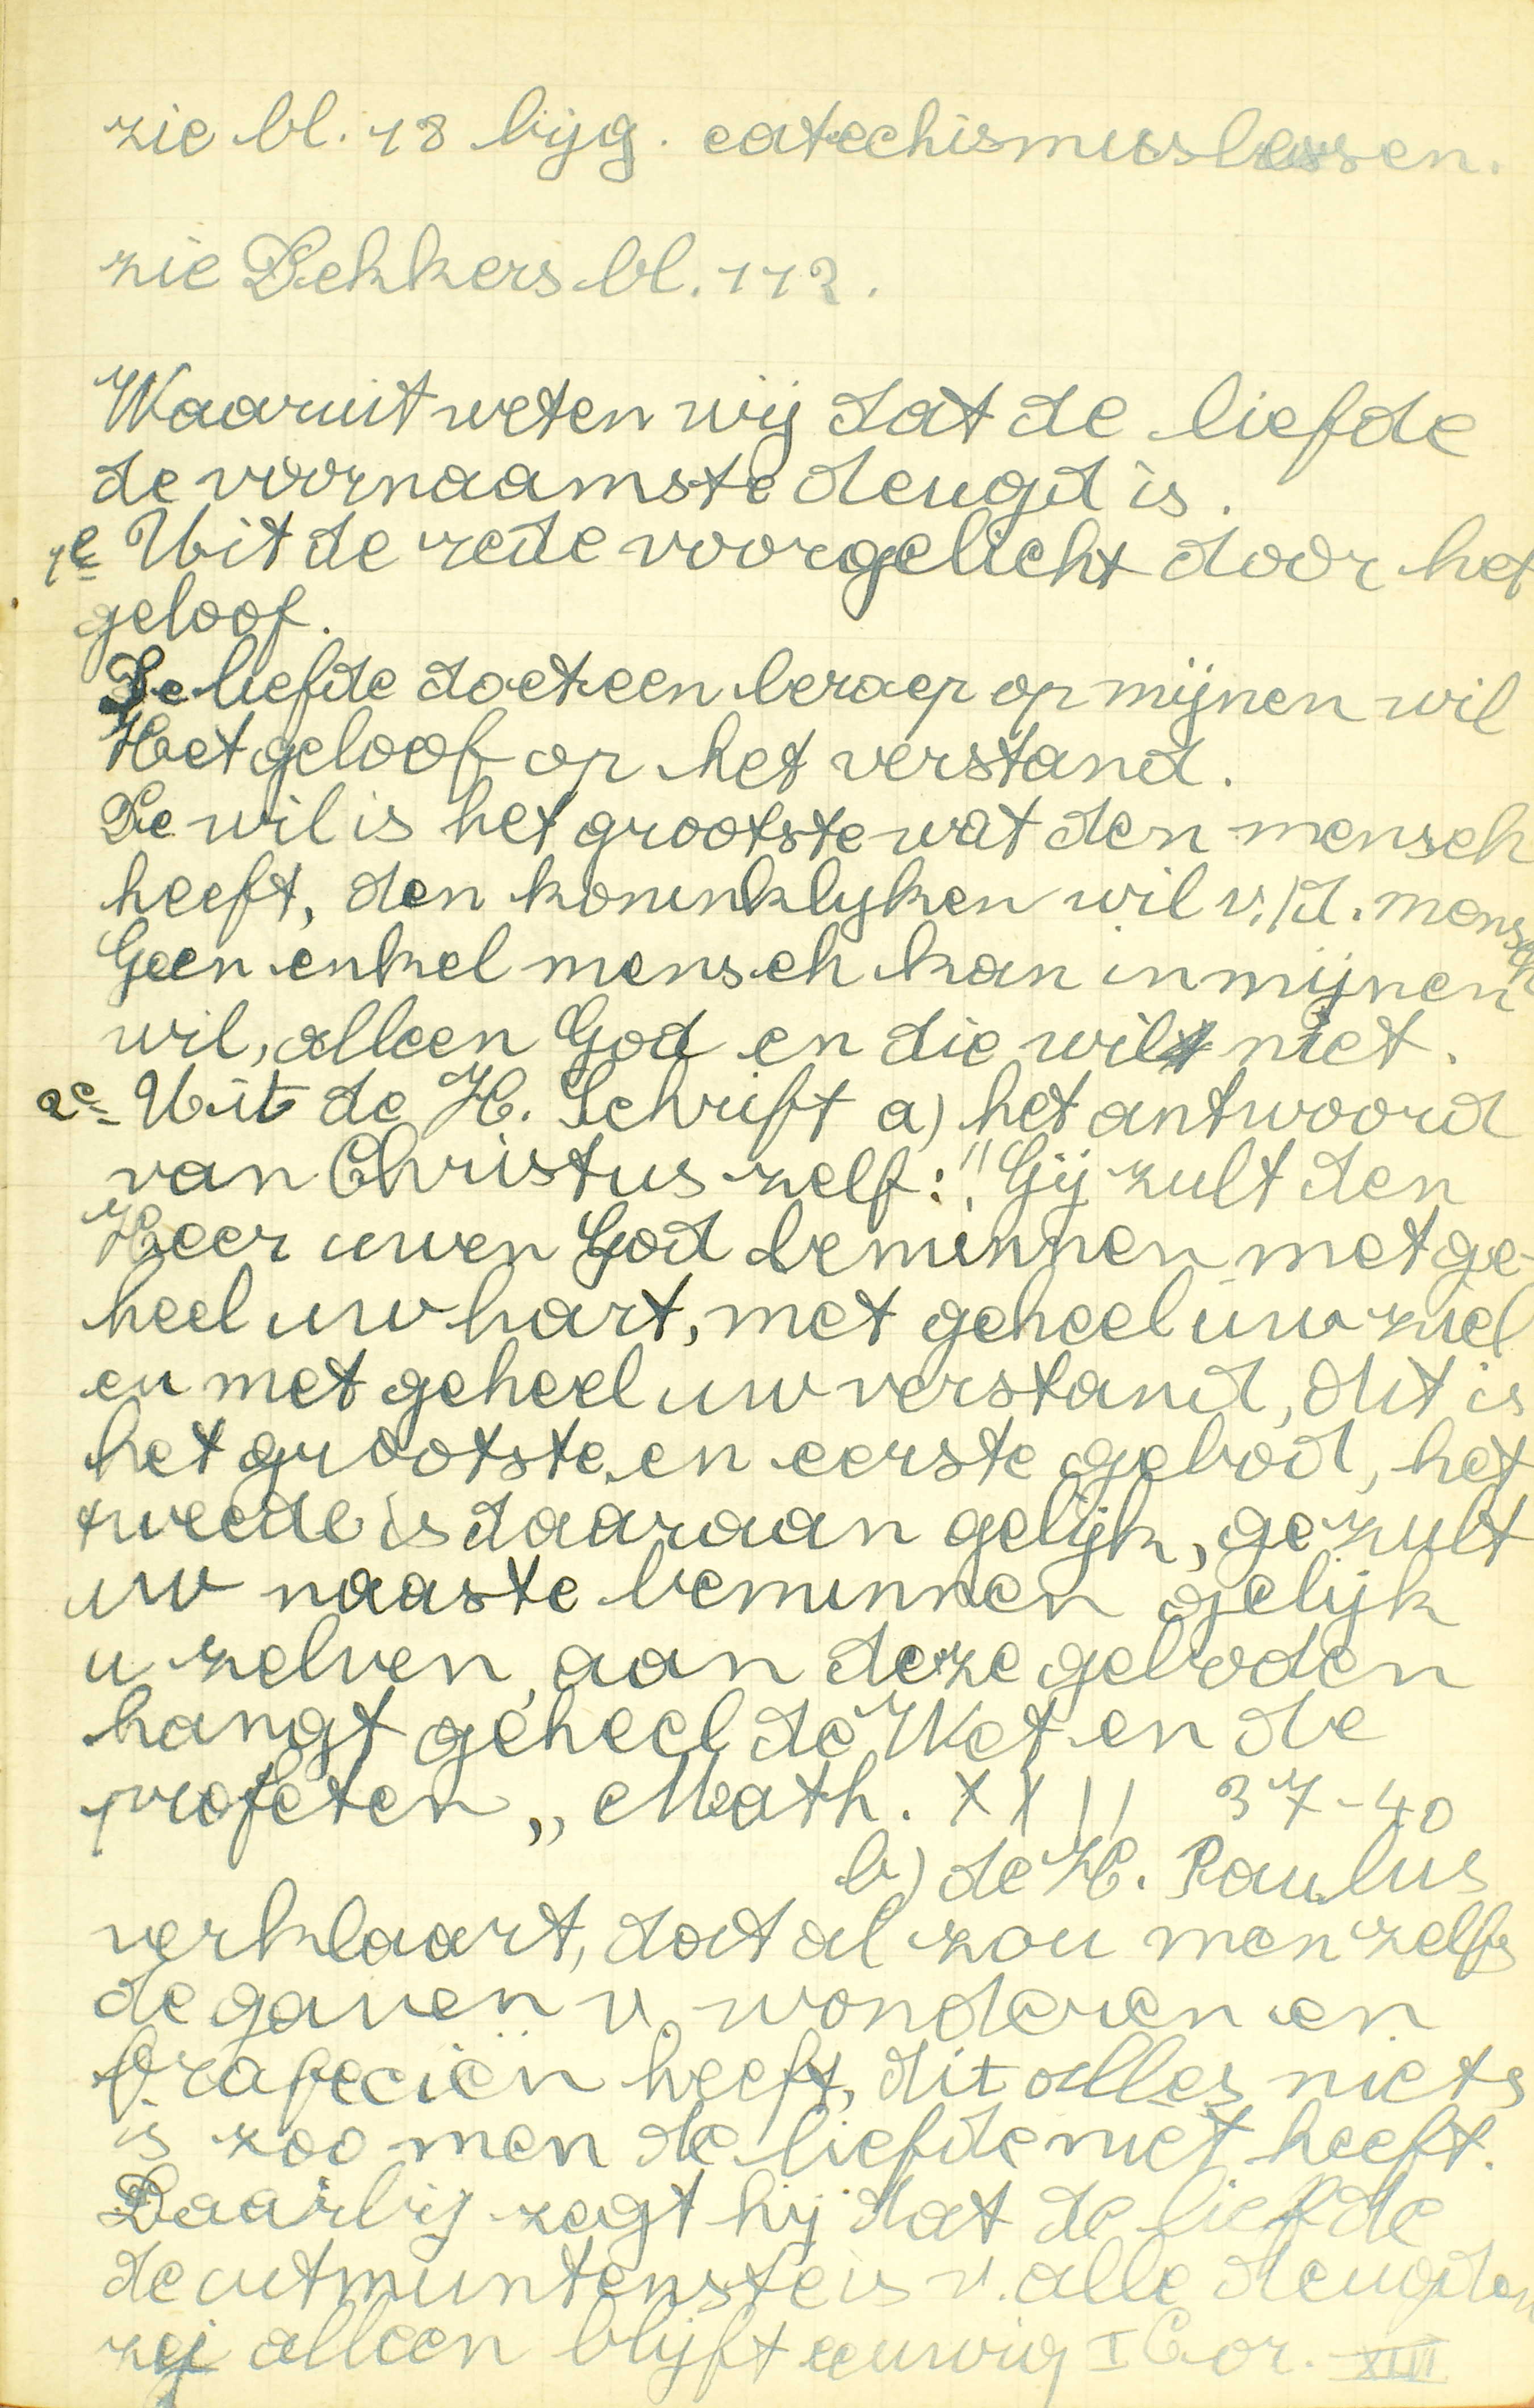 zie bl. 18 bijg. catechismuslessen.
zie Dekkers bl. 112.
Waaruit weten wij dat de liefde
de voornaamste deugd is.
1e Uit de rede voorgelicht door het
geloof.
De liefde doet een beroep op mijnen wil
Het geloof op het verstand.
De wil is het grootste wat den mensch
heeft, den koninklyken wil v/d. mensch
Geen enkel mensch kan in mijnen
wil, alleen God en die wilt niet.
2e Uit de H. Schrift a) het antwoord
van Christus zelf: "Gij zult den
Heer uwen God beminnen met ge-
heel uw hart, met geheel uw ziel
en met geheel uw verstand, dit is
het grootste en eerste gebod, het
tweede is daaraan gelijk, ge zult
uw naaste beminnen gelijk
u zelven, aan deze geboden
hangt geheel de Wet en de
profeten„ Math. XXII 37-40
b) de H. Paulus
verklaart, dat al zou men zelfs
de gaven v. wonderen en
profeciën heeft, dit alles niets
is zoo men de liefde niet heeft.
Daarbij zegt hij dat de liefde
de uitmuntenste is v. alle deugden
zij alleen blijft eeuwig I Cor. XIII